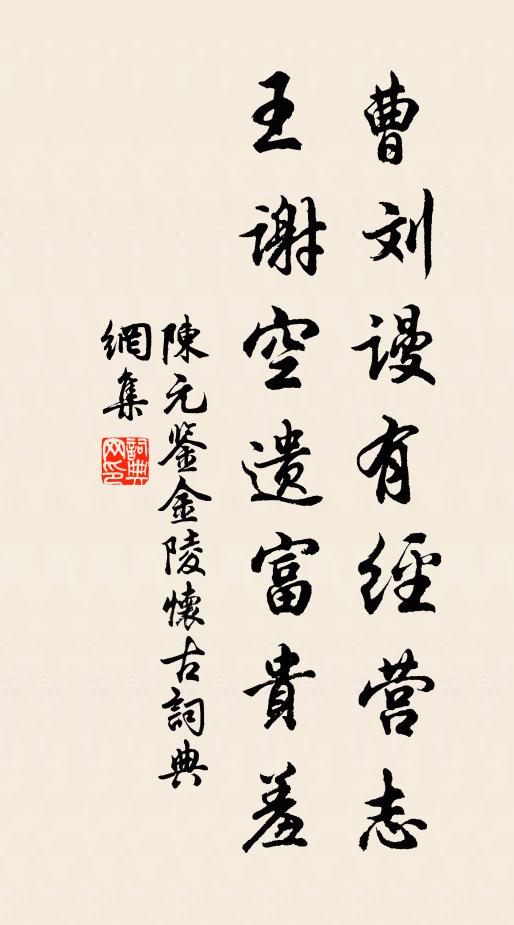 曹刘谩有經营志
王谢空遗富貴羞
陳元鉴金陵懷古詞典
網集
詞典
网印